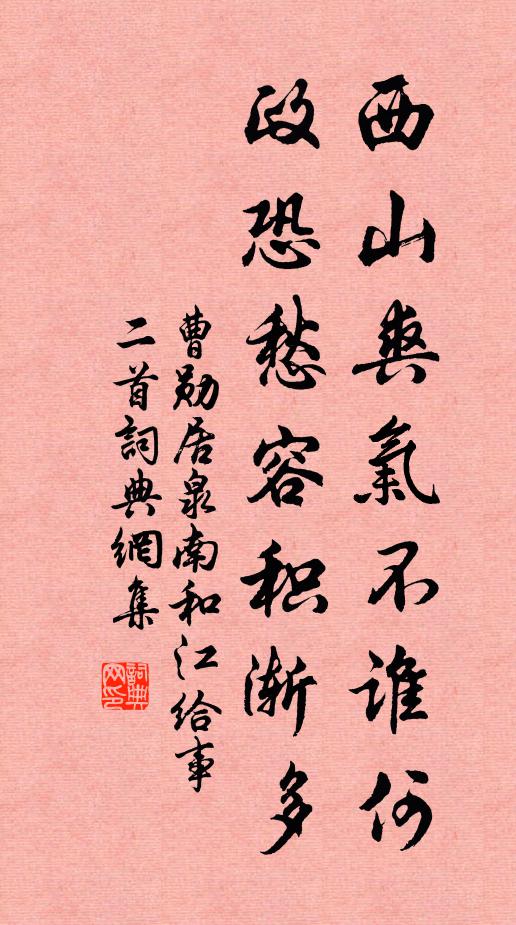 西山爽氣不誰何
政恐愁容积渐多
曹勋居泉南和江给事
二首詞典網集
詞典网印